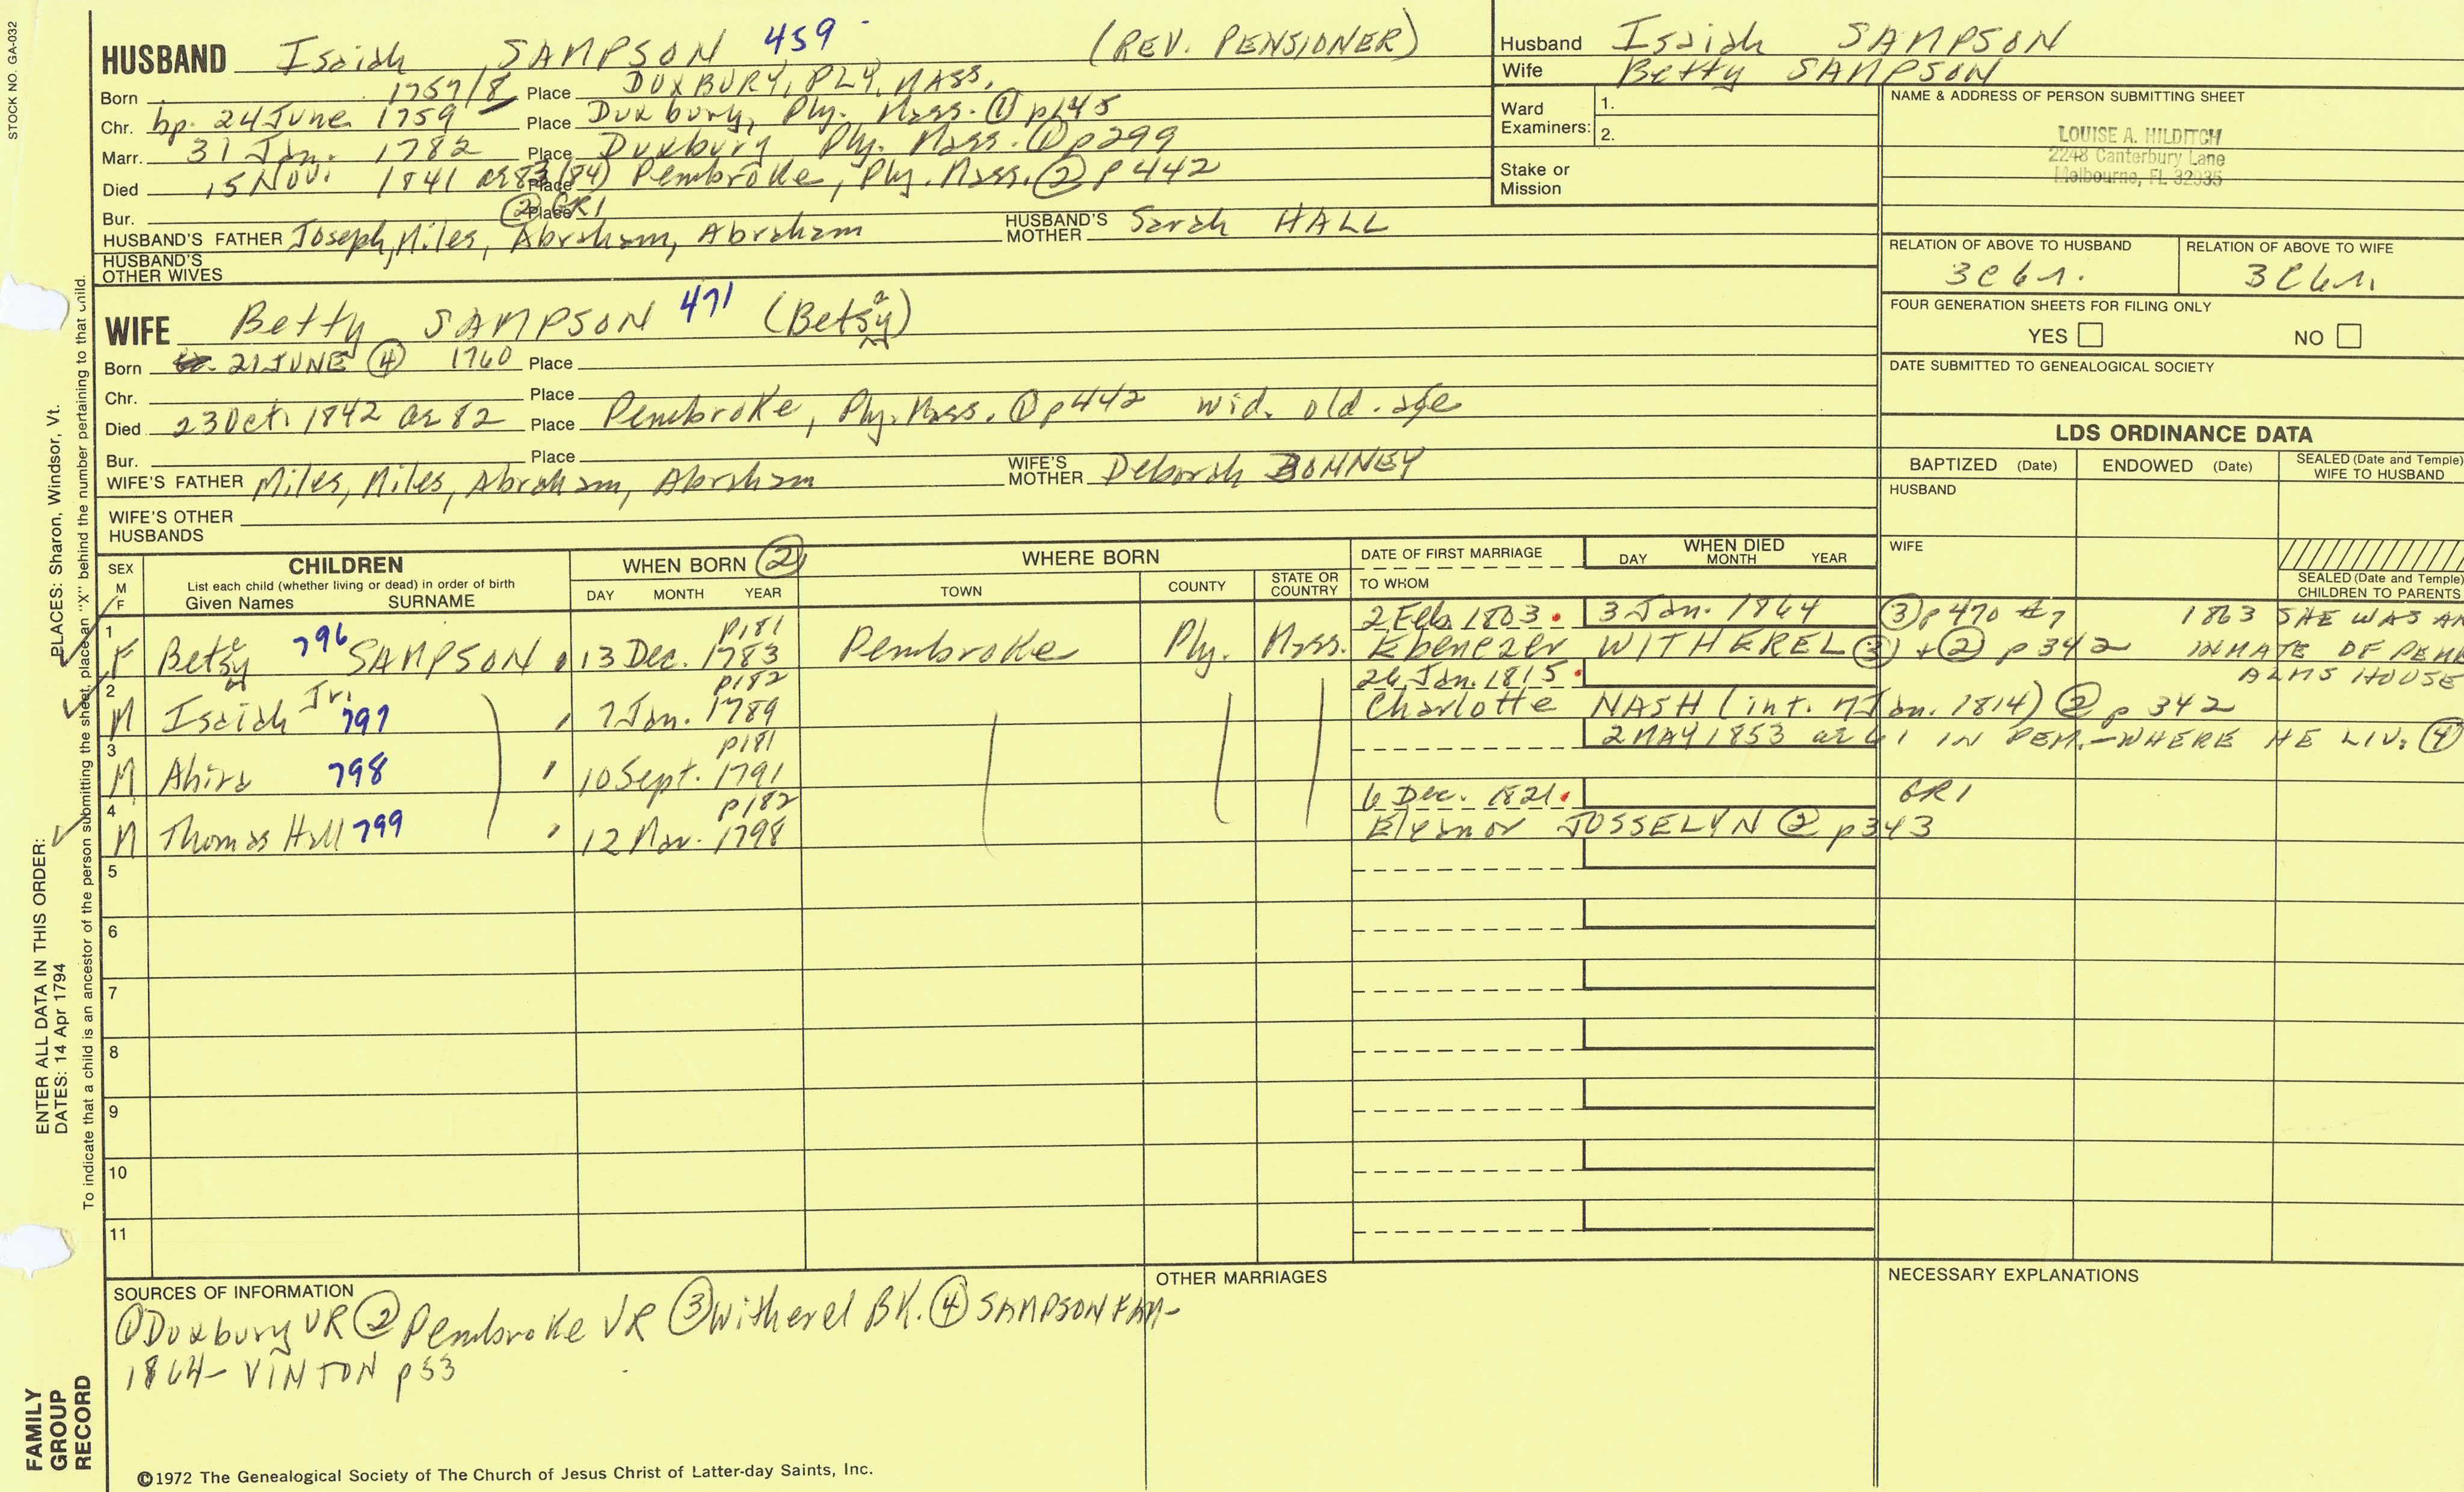 STOCK NO. GA-032
HUSBAND Isaiah SAMPSON 459 (REV. PENSIONER)
Born 1757/8 Place DUXBURY, PLY, MASS.
Chr. bp. 24 June 1759 Place Duxbury, Ply. Mass. ① p145
Marr. 31 Jan. 1782 Place Duxbury Ply. Mass. ① p299
Died 15 Nov. 1841 ae 83 (84) Place Pembroke, Ply. Mass. ② p442
Bur. Place ② GR1
HUSBAND'S FATHER Joseph, Miles, Abraham, Abraham HUSBAND'S MOTHER Sarah HALL
HUSBAND'S OTHER WIVES
WIFE Betty SAMPSON 471 (Betsy)
Born 21 JUNE ④ 1760 Place
Chr. Place
Died 23 Oct. 1842 ae 82 Place Pembroke, Ply. Mass. ① p442 wid. old age
Bur. Place
WIFE'S FATHER Miles, Miles, Abraham, Abraham WIFE'S MOTHER Deborah BONNEY
WIFE'S OTHER HUSBANDS
Husband Isaiah SAMPSON
Wife Betty SAMPSON
Ward Examiners: 1.
2.
Stake or Mission
NAME & ADDRESS OF PERSON SUBMITTING SHEET
LOUISE A. HILDITCH
2248 Canterbury Lane
Melbourne, FL 32935
RELATION OF ABOVE TO HUSBAND RELATION OF ABOVE TO WIFE
3C6r. 3C6r.
FOUR GENERATION SHEETS FOR FILING ONLY
YES NO
DATE SUBMITTED TO GENEALOGICAL SOCIETY
LDS ORDINANCE DATA
BAPTIZED (Date) ENDOWED (Date) SEALED (Date and Temple) WIFE TO HUSBAND
HUSBAND
WIFE
SEALED (Date and Temple) CHILDREN TO PARENTS
SEX M F CHILDREN List each child (whether living or dead) in order of birth Given Names SURNAME
WHEN BORN ② DAY MONTH YEAR
WHERE BORN TOWN COUNTY STATE OR COUNTRY
DATE OF FIRST MARRIAGE TO WHOM
WHEN DIED DAY MONTH YEAR
p181 2 Feb. 1803 3 Jan. 1864 ③ p470 #7 1863 SHE WAS AN
1 F Betsy 796 SAMPSON 13 Dec. 1783 Pembroke Ply. Mass. Ebenezer WITHEREL ③ + ② p342 INMATE OF PEM
p182 26 Jan. 1815 ALMS HOUSE
2 M Isaiah Jr. 797 7 Jan. 1789 Charlotte NASH (int. 7 Jan. 1814) ② p 342
p181 2 MAY 1853 ae 61 IN PEM.-WHERE HE LIV. ④
3 M Ahira 798 10 Sept. 1791
p182 6 Dec. 1821 GR1
4 M Thomas Hall 799 12 Mar. 1798 Eleanor JOSSELYN ② p343
5
6
7
8
9
10
11
SOURCES OF INFORMATION
① Duxbury VR ② Pembroke VR ③ Witherel BK. ④ SAMPSON FAM-
1864- VINTON p53
OTHER MARRIAGES
NECESSARY EXPLANATIONS
©1972 The Genealogical Society of The Church of Jesus Christ of Latter-day Saints, Inc.
FAMILY GROUP RECORD
ENTER ALL DATA IN THIS ORDER:
DATES: 14 Apr 1794
PLACES: Sharon, Windsor, Vt.
To indicate that a child is an ancestor of the person submitting the sheet, place an "X" behind the number pertaining to that child.